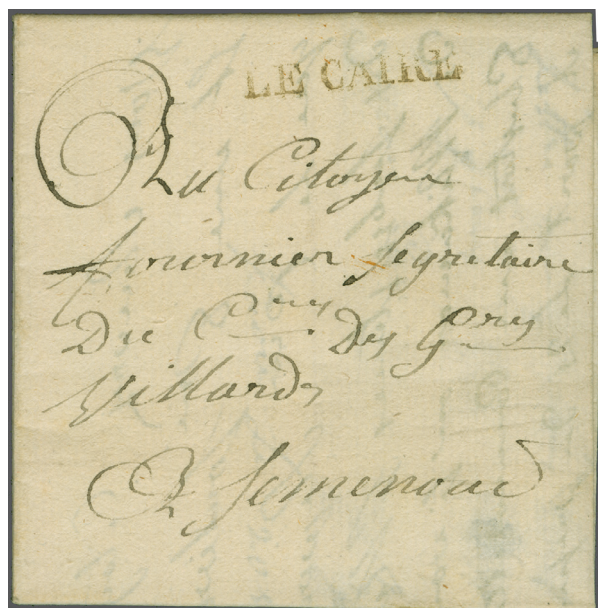 LE CAIRE
Au Citoyen
fournier Segretaire
Du C^rys Des G^rys
Villards
A Semenoud